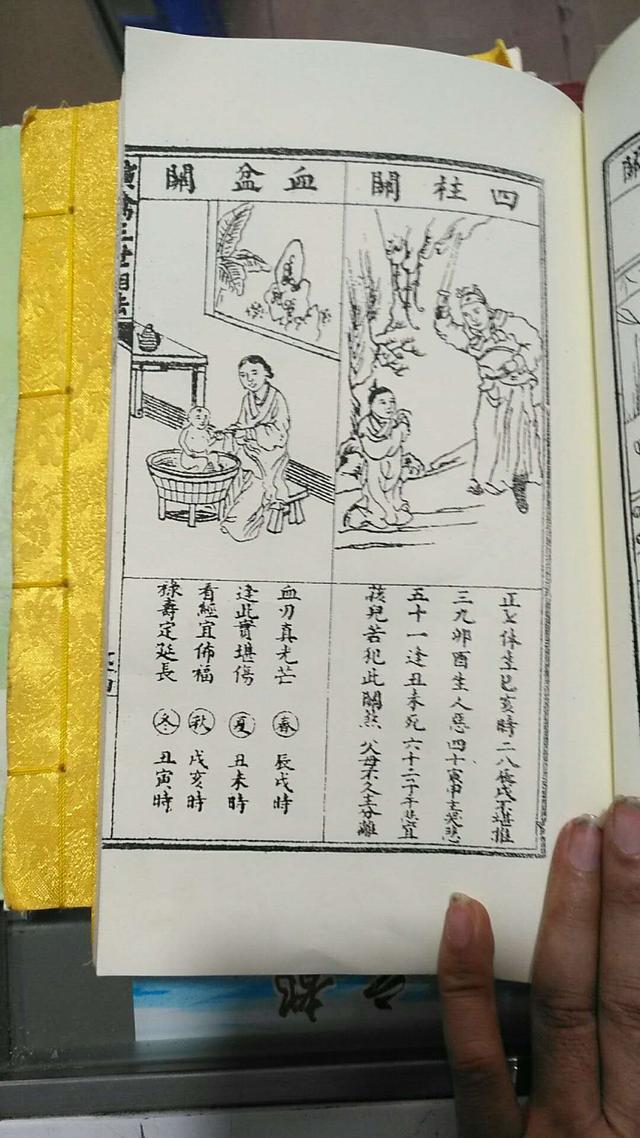 四柱關
正七休生巳亥時二八辰戌不堪推
三九卯酉生人惡四十寅申主哭悲
五十一逢丑未死六十二子午悲宜
孩兒若犯此關煞父母不久主分離
血盆關
血刃真光芒 春 辰戌時
逢此實堪傷 夏 丑未時
看經宜佈福 秋 戌亥時
祿壽定延長 冬 丑寅時
演禽三世相法
關